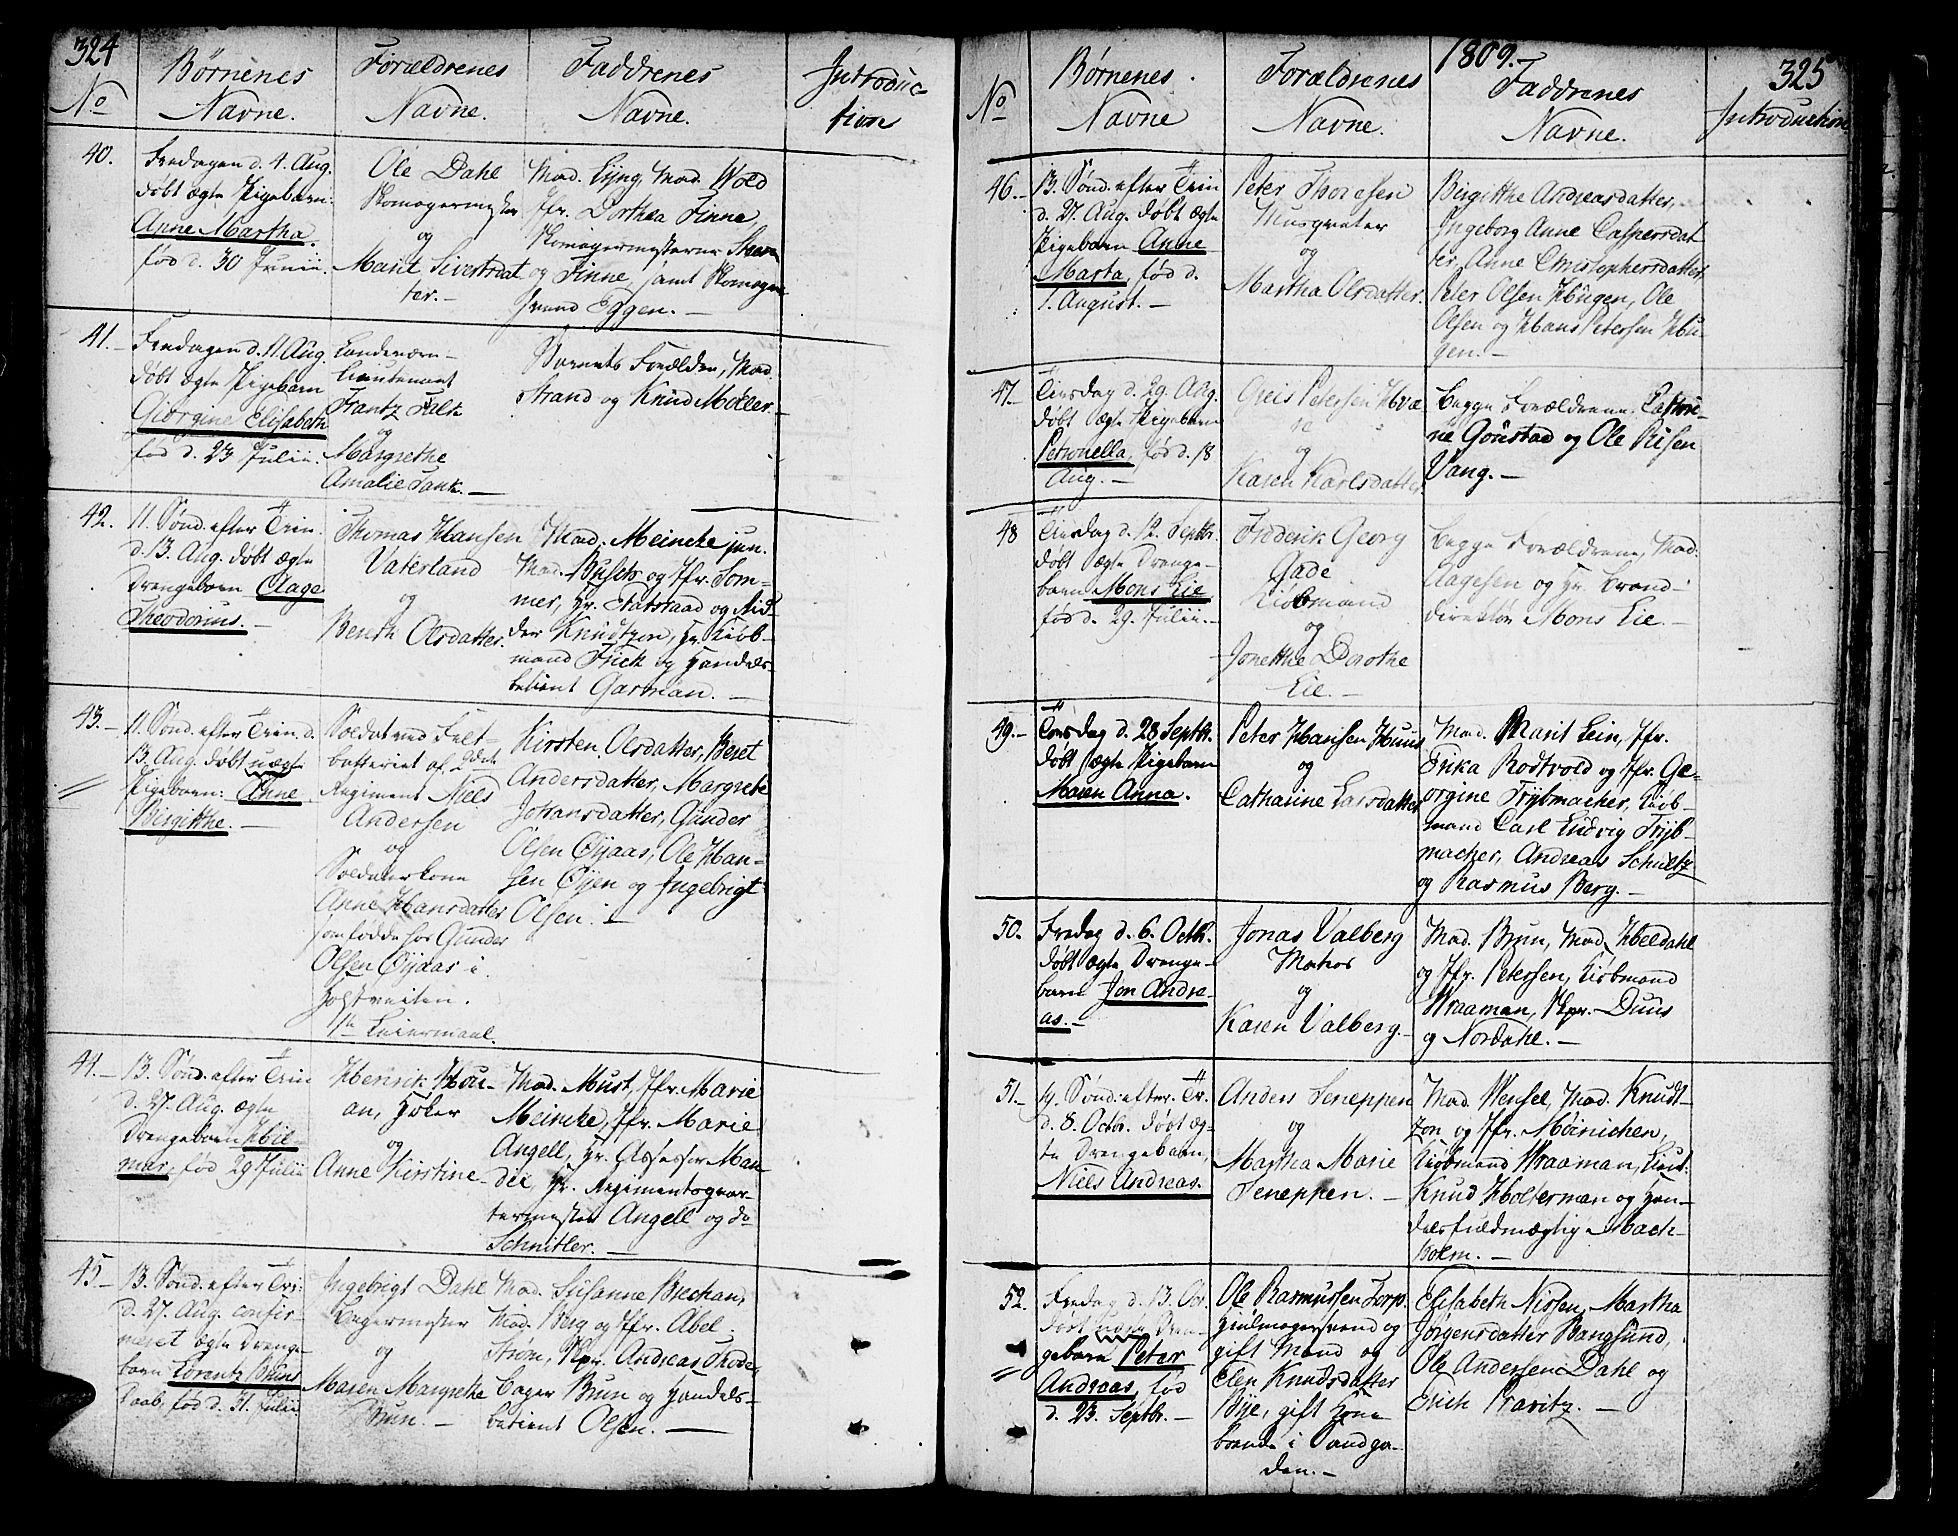 324
No
Børnenes
Navne.
Forældrenes
Navne.
Faddrenes
Navne.
Introduc-
tion
40.
Fredagen d. 4. Aug.
døbt ægte Pigebarn
Anne Martha.
fød d. 30 Junii.
Ole Dahl
Skomagermester
og
Marit Sivertsdat
ter.-
Mad. Lyng, Mad. Wold
Jfr. Dorthea Finne
Skomagermesterne
og Finne, samt Skomager
svend Eggen.-
41.-
Fredagen d. 11 Aug.
døbt ægte Pigebarn
Giørgine Elisabeth
fød d. 23 Julii.
Landeværn-
Lieutenant
Frantz Falk
og
Margrethe
Amalie Tank.-
Barnets Forældre, Mad.
Strand og Knud Møller.-
42.
11. Sønd. efter Trin.
d. 13. Aug. døbt ægte
Drengebarn Aage
Theodorius.-
Thomas Hansen
Vaterland
og
Berith Olsdatter.
Mad. Meincke jun.
Mad. Busch og Jfr. Som-
mer, Hr. Etatsraad og Rid-
der Knudtzon, Hr. Kiøb-
mand Frick og Handels-
betient Garman.-
43.-
11. Sønd. efter Trin. d.
13. Aug. døbt uægte
Pigebarn: Anne
Birgitthe.-
Soldat ved Felt-
batteriet af 2det
Regiment Niels
Andersen
og
Soldaterkone
Anne Hansdatter
som fødde hos Gunder
Olsen Øyaas i
Hospveiten.
1ste Leiermaal.
Kirsten Olsdatter, Beret
Andersdatter, Margrete
Johansdatter, Gunder
Olsen Øyaas, Ole Han-
sen Øyen og Ingebrigt
Olsen.-
44.-
13. Sønd. efter Trin
d. 27. Aug. ægte
Drengebarn Hil-
mar, fød 29 Julii
Henrik Hou-
an, Høker
og
Anne Kirstine
Mad. Must, Jfr. Marie
Meincke, Jfr. Marie
Angell, Hr. Assessor Man-
dei, Hr. Regimentsqvar-
termester Angell og do
Schnitler.-
45-
13. Sønd. efter Tri.
d. 27. Aug. confir-
meret ægte Drenge-
barn Lorentz Bruns
Raab, fød d. 31. Julii.
Ingebrigt Dahl
Bagermester
og
Maren Margrethe
Brun.-
Mad. Susanne Brechan,
Mad. Berg og Jfr. Abel
Strøm, Skpr. Andreas Thode,
Bager Brun og Handels-
betient Olsen.-
1809.
325
No
Børnenes
Navne
Forældrenes
Navne.
Faddrenes
Navne.
Introduction
46.-
13. Sønd. efter Trin
d. 27. Aug. døbt ægte
Pigebarn Anne
Marta, fød d.
1. August.-
Peter Thoresen
Musqueter
og
Martha Olsdatter.
Birgitthe Andreasdatter,
Ingeborg Anne Caspersdat
ter, Anne Christophersdatter
Peter Olsen Haugen, Ole
Olsen og Hans Petersen Hau-
gen.-
47.-
Tirsdag d. 29. Aug.
døbt ægte Pigebarn
Petronella, fød d. 18
Aug.-
Greis Petersen
og
Karen Karlsdatter
Begge Forældrene, Cathri-
ne Gørstad og Ole Risen
Vang.-
48
Tirsdag d. 12. Septbr.
døbt ægte Drenge-
barn Mons Lie
fød d. 29. Julii.-
Frederik Georg
Gade
Kiøbmand
og
Jonethe Dorothe
Lie.-
Begge Forældrene, Mad.
Aagesen og Hr. Brand-
direktør Mons Lie.-
49.-
Torsdag d. 28 Septbr.
døbt ægte Pigebarn
Maren Anna.
Peter Hansen Huus
og
Catharine Larsdatter
Mad. Marit Lein, Jfr.
Erika Rodtvold og Jfr. Ge-
orgine Trybmacher, Kiøb-
mand Carl Ludvig Tryb-
macher, Andreas Schultz
og Rasmus Berg.-
50.
Fredag d. 6. Octb.
døbt ægte Drenge-
barn Jon Andre-
as.-
Jonas Valberg
Matros
og
Karen Valberg.-
Mad. Brun, Mad. Heldahl
og Jfr. Petersen, Kiøbmand
Wraaman, Skpr. Duus
og Nordahl.-
51.-
19. Sønd. efter Tr.
d. 8. Octbr. døbt æg-
te Drengebarn,
Niels Andreas.
Anders Seneppen
og
Martha Marie
Seneppen.-
Mad. Wensel, Mad. Knudt-
zon og Jfr. Møinichen,
Kiøbmand Wraaman, Lieut.
Knud Holterman og Han-
delsfuldmægtig Mach-
holm.-
52.
Fredag d. 13. Oct.
døbt uægte Dren-
gebarn Peter
Andreas, fød
d. 23. Septbr.-
Ole Rasmussen Torp.
Hiulmagersvend og
gift Mand og
Elen Knudsdatter
Bye, gift Kone
boende i Sandga-
den.-
Elisabeth Nissen, Martha
Jørgensdatter Bangsund,
Ole Andersen Dahl og
Erich Pravitz.-